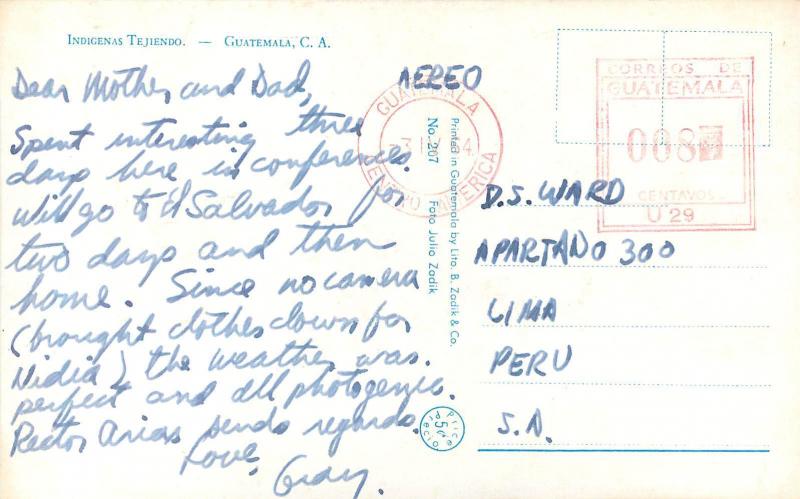 INDIGENAS TEJIENDO. — GUATEMALA, C. A.
AEREO
Dear Mother and Dad,
Spent interesting three
days here in conferences.
Will go to El Salvador for
two days and then
home. Since no camera
(brought clothes down for
Nidia) the weather was
perfect and all photogenic.
Rector Arias sends regards.
Love,
Gray.
GUATEMALA
CENTRO AMERICA
No. 207 Foto Julio Zadik
Printed in Guatemala by Lito. B. Zadik & Co.
Price
5¢
Precio
CORREOS DE
GUATEMALA
008
CENTAVOS
U 29
D.S. WARD
APARTADO 300
LIMA
PERU
S.A.